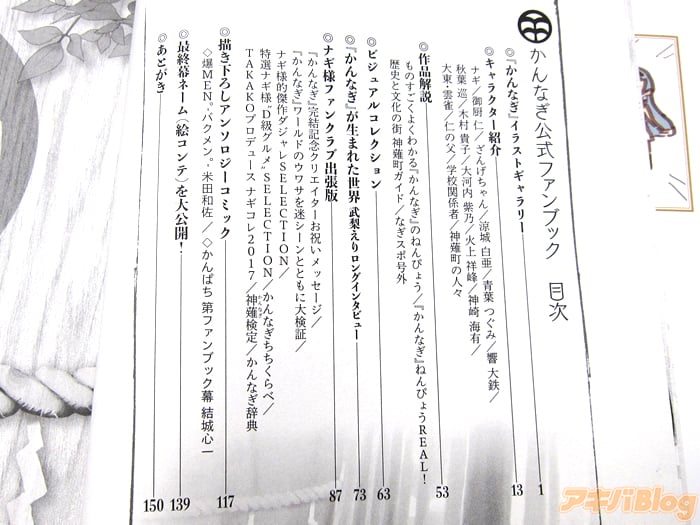 かんなぎ公式ファンブック 目次
◎『かんなぎ』イラストギャラリー 1
◎キャラクター紹介 13
ナギ／御厨 仁／ざんげちゃん／涼城 白亜／青葉 つぐみ／響 大鉄／
秋葉 巡／木村 貴子／大河内 紫乃／火上 祥峰／神崎 海有／
大東 雲雀／仁の父／学校関係者／神薙町の人々
◎作品解説 53
ものすごくよくわかる『かんなぎ』のねんぴょう／『かんなぎ』ねんぴょうREAL！
歴史と文化の街 神薙町ガイド／なぎスポ号外
◎ビジュアルコレクション 63
◎『かんなぎ』が生まれた世界 武梨えりロングインタビュー 73
◎ナギ様ファンクラブ出張版 87
『かんなぎ』完結記念クリエイターお祝いメッセージ／
『かんなぎ』ワールドのウワサを迷シーンとともに大検証／
ナギ様的傑作ダジャレSELECTION／
特選ナギ様"D級グルメ"SELECTION／かんなぎちちくらべ／
TAKAKOプロデュース ナギコレ2017／神薙検定／かんなぎ辞典
◎描き下ろしアンソロジーコミック 117
◇爆MEN。バクメン。 米田和佐／◇かんぱち 第ファンブック幕 結城心一
◎最終幕ネーム（絵コンテ）を大公開！ 139
◎あとがき 150
アキバBlog